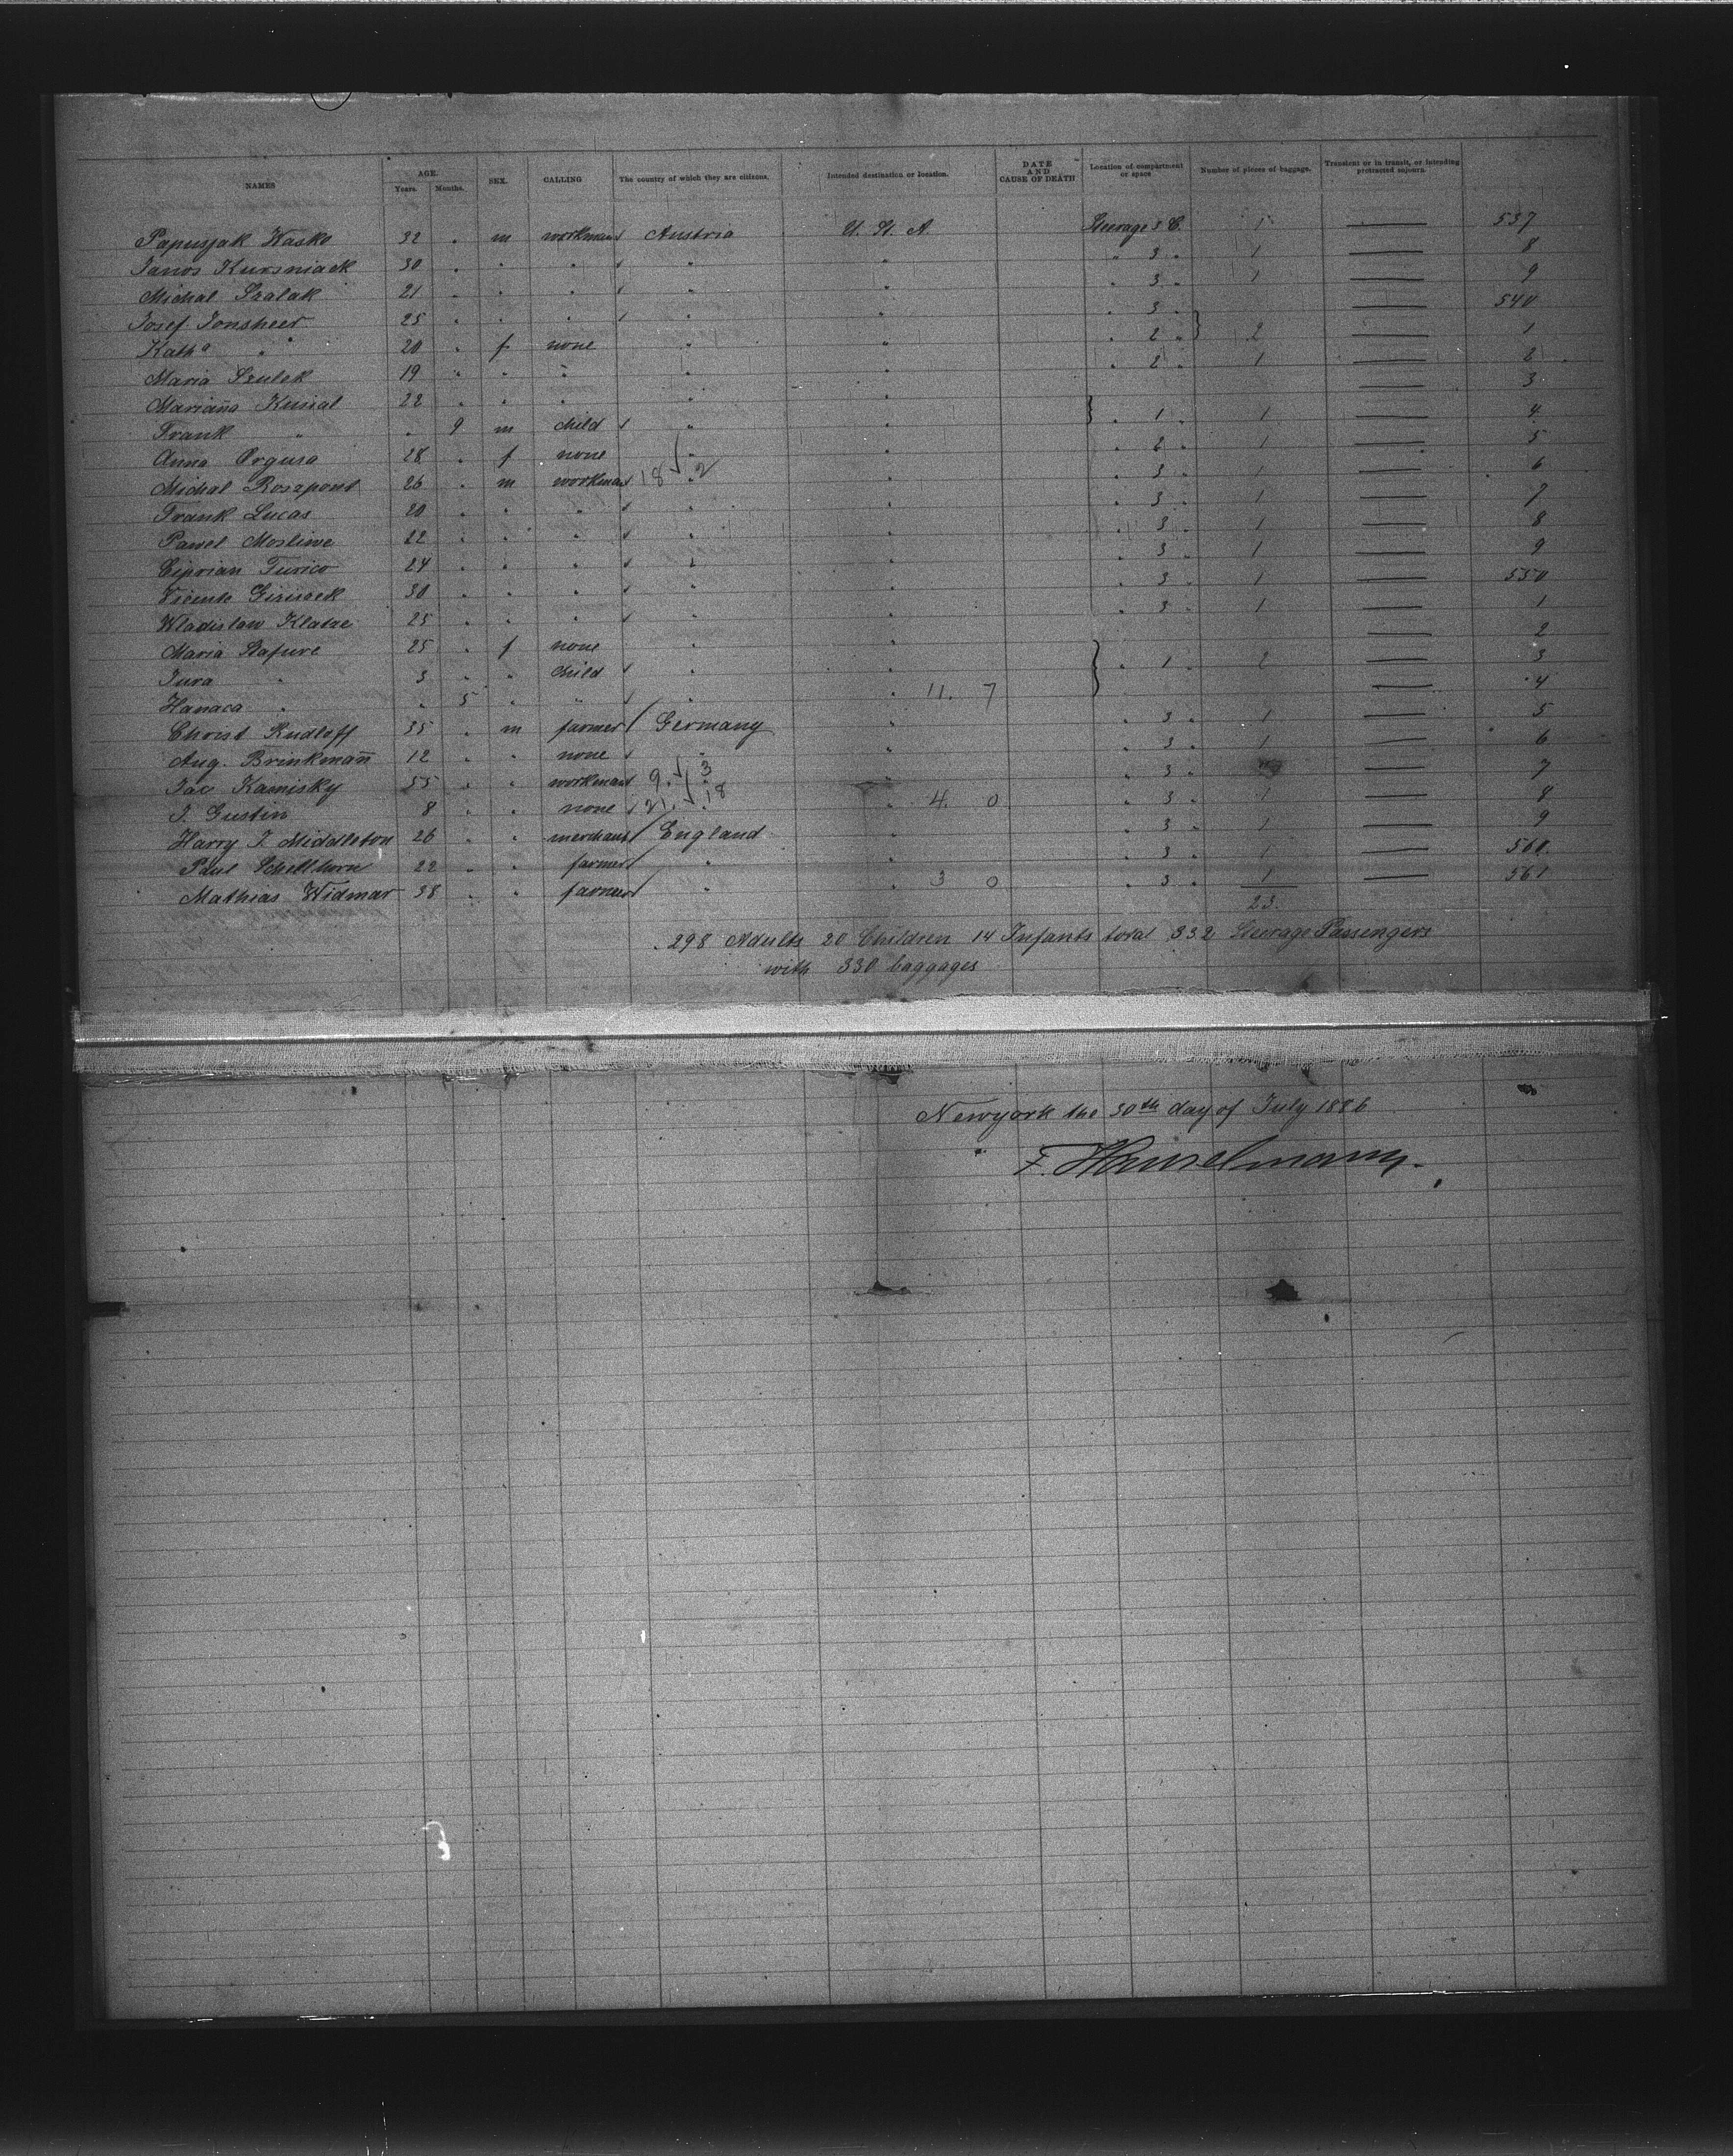 NAMES AGE. Years. Months. SEX. CALLING The country of which they are citizens. Intended destination or location. DATE AND CAUSE OF DEATH Location of compartment or space Number of pieces of baggage. Transient or in transit, or intending protracted sojourn.
Papusjak Wasko 32 " m workman Austria U. St. A. Steerage 3 C. 1 — 537
Janos Kursniack 30 " " " " " " 3 " 1 — 8
Michal Szalak 21 " " " " " " 3 " 1 — 9
Josef Jonsheer 25 " " " " " " 3 " — 540
Katha " 20 " f none " " " 2 " 2 — 1
Maria Szulek 19 " " " " " " 2 " 1 — 2
Mariana Kusial 22 " " " " " — 3
Frank " " 9 m child " " " 1 " 1 — 4
Anna Orgusa 28 " f none " " " 2 " 1 — 5
Michal Roszpont 26 " m workman 18 √ 2 " " 3 " 1 — 6
Frank Lucas 20 " " " " " " 3 " 1 — 7
Pawel Mosliwe 22 " " " " " " 3 " 1 — 8
Ciprian Turico 24 " " " " " " 3 " 1 — 9
Vicente Girisack 30 " " " " " " 3 " 1 — 550
Wladislaw Klatze 25 " " " " " " 3 " 1 — 1
Maria Stafure 25 " f none " " — 2
Jura " 3 " " child " " " 1 " 2 — 3
Hanaca " " 5 " " " " 11. 7 — 4
Christ Rudloff 35 " m farmer Germany " " 3 " 1 — 5
Aug. Brinkmann 12 " " none " " " 3 " 1 — 6
Jac Kaminsky 55 " " workman 9. √ 3 " " 3 " — 7
J. Gustin 8 " " none 21. √ 18 " 4. 0 " 3 " 1 — 8
Harry J. Middleton 26 " " merchant England " " 3 " 1 — 9
Paul Schellhorn 22 " " farmer " " " 3 " 1 — 560
Mathias Widmar 38 " " farmer " " 3 0 " 3 " 1 — 561
23.
298 Adults 20 Children 14 Infants total 332 Steerage Passengers
with 330 baggages
Newyork the 30th day of July 1886